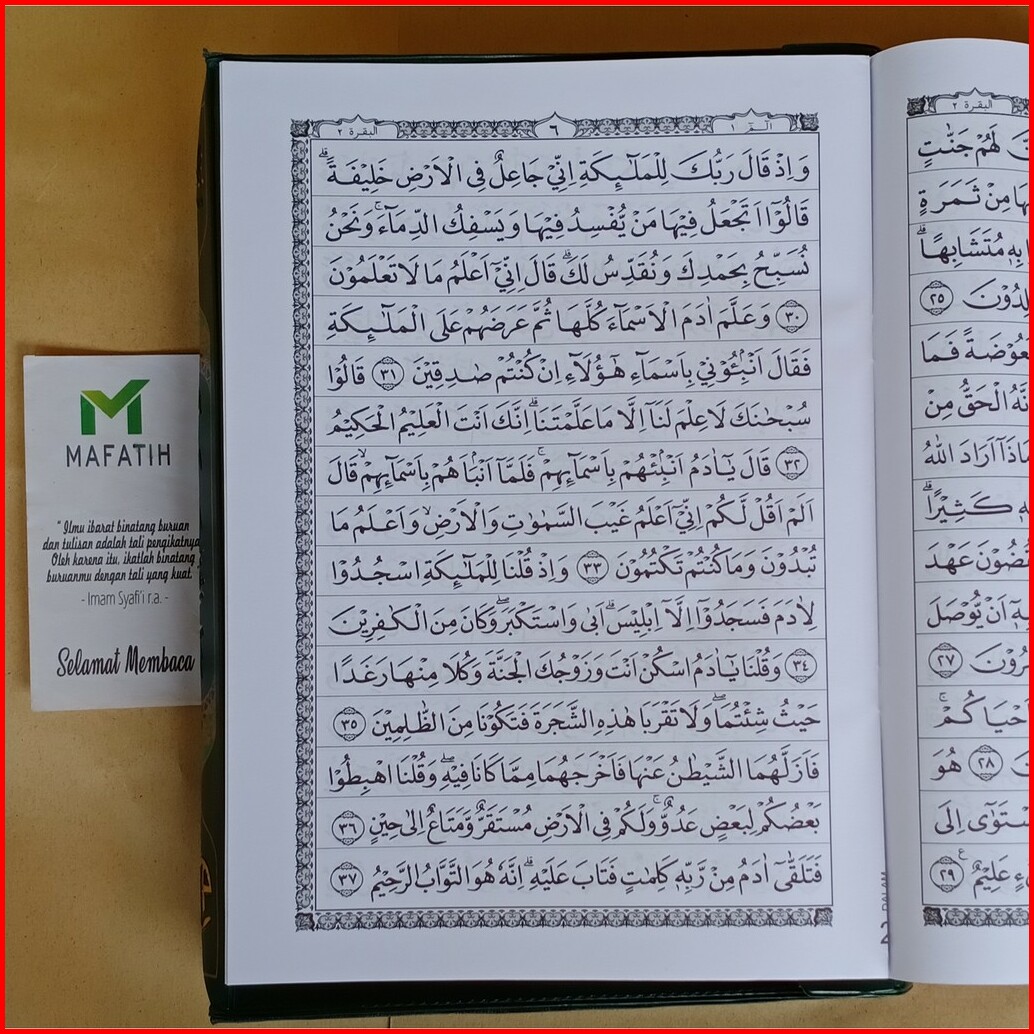 البقرة ٢
٦
الٓمّٓ ١
وَاِذْ قَالَ رَبُّكَ لِلْمَلٰۤىِٕكَةِ اِنِّيْ جَاعِلٌ فِى الْاَرْضِ خَلِيْفَةًۗ
قَالُوْٓا اَتَجْعَلُ فِيْهَا مَنْ يُّفْسِدُ فِيْهَا وَيَسْفِكُ الدِّمَاۤءَۚ وَنَحْنُ
نُسَبِّحُ بِحَمْدِكَ وَنُقَدِّسُ لَكَۗ قَالَ اِنِّيْٓ اَعْلَمُ مَا لَا تَعْلَمُوْنَ
٣٠ وَعَلَّمَ اٰدَمَ الْاَسْمَاۤءَ كُلَّهَا ثُمَّ عَرَضَهُمْ عَلَى الْمَلٰۤىِٕكَةِ
فَقَالَ اَنْۢبِـُٔوْنِيْ بِاَسْمَاۤءِ هٰٓؤُلَاۤءِ اِنْ كُنْتُمْ صٰدِقِيْنَ ٣١ قَالُوْا
سُبْحٰنَكَ لَا عِلْمَ لَنَآ اِلَّا مَا عَلَّمْتَنَاۗ اِنَّكَ اَنْتَ الْعَلِيْمُ الْحَكِيْمُ
٣٢ قَالَ يٰٓاٰدَمُ اَنْۢبِئْهُمْ بِاَسْمَاۤىِٕهِمْۚ فَلَمَّآ اَنْۢبَاَهُمْ بِاَسْمَاۤىِٕهِمْۙ قَالَ
اَلَمْ اَقُلْ لَّكُمْ اِنِّيْٓ اَعْلَمُ غَيْبَ السَّمٰوٰتِ وَالْاَرْضِۙ وَاَعْلَمُ مَا
تُبْدُوْنَ وَمَا كُنْتُمْ تَكْتُمُوْنَ ٣٣ وَاِذْ قُلْنَا لِلْمَلٰۤىِٕكَةِ اسْجُدُوْا
لِاٰدَمَ فَسَجَدُوْٓا اِلَّآ اِبْلِيْسَۗ اَبٰى وَاسْتَكْبَرَۖ وَكَانَ مِنَ الْكٰفِرِيْنَ
٣٤ وَقُلْنَا يٰٓاٰدَمُ اسْكُنْ اَنْتَ وَزَوْجُكَ الْجَنَّةَ وَكُلَا مِنْهَا رَغَدًا
حَيْثُ شِئْتُمَاۖ وَلَا تَقْرَبَا هٰذِهِ الشَّجَرَةَ فَتَكُوْنَا مِنَ الظّٰلِمِيْنَ ٣٥
فَاَزَلَّهُمَا الشَّيْطٰنُ عَنْهَا فَاَخْرَجَهُمَا مِمَّا كَانَا فِيْهِۖ وَقُلْنَا اهْبِطُوْا
بَعْضُكُمْ لِبَعْضٍ عَدُوٌّۚ وَلَكُمْ فِى الْاَرْضِ مُسْتَقَرٌّ وَّمَتَاعٌ اِلٰى حِيْنٍ ٣٦
فَتَلَقّٰٓى اٰدَمُ مِنْ رَّبِّهٖ كَلِمٰتٍ فَتَابَ عَلَيْهِۗ اِنَّهٗ هُوَ التَّوَّابُ الرَّحِيْمُ ٣٧
البقرة ٢
لَهُمْ جَنّٰتٍ
مِنْ ثَمَرَةٍ
بِهٖ مُتَشَابِهًاۗ
٢٥
فَمَا
الْحَقُّ مِنْ
اَرَادَ اللّٰهُ
كَثِيْرًاۗ
عَهْدَ
اَنْ يُّوْصَلَ
٢٧
٢٨ هُوَ
اِلَى
عَلِيْمٌ ٢٩
MAFATIH
" Ilmu ibarat binatang buruan
dan tulisan adalah tali pengikatnya.
Oleh karena itu, ikatlah binatang
buruanmu dengan tali yang kuat.
- Imam Syafi'i r.a. -
Selamat Membaca